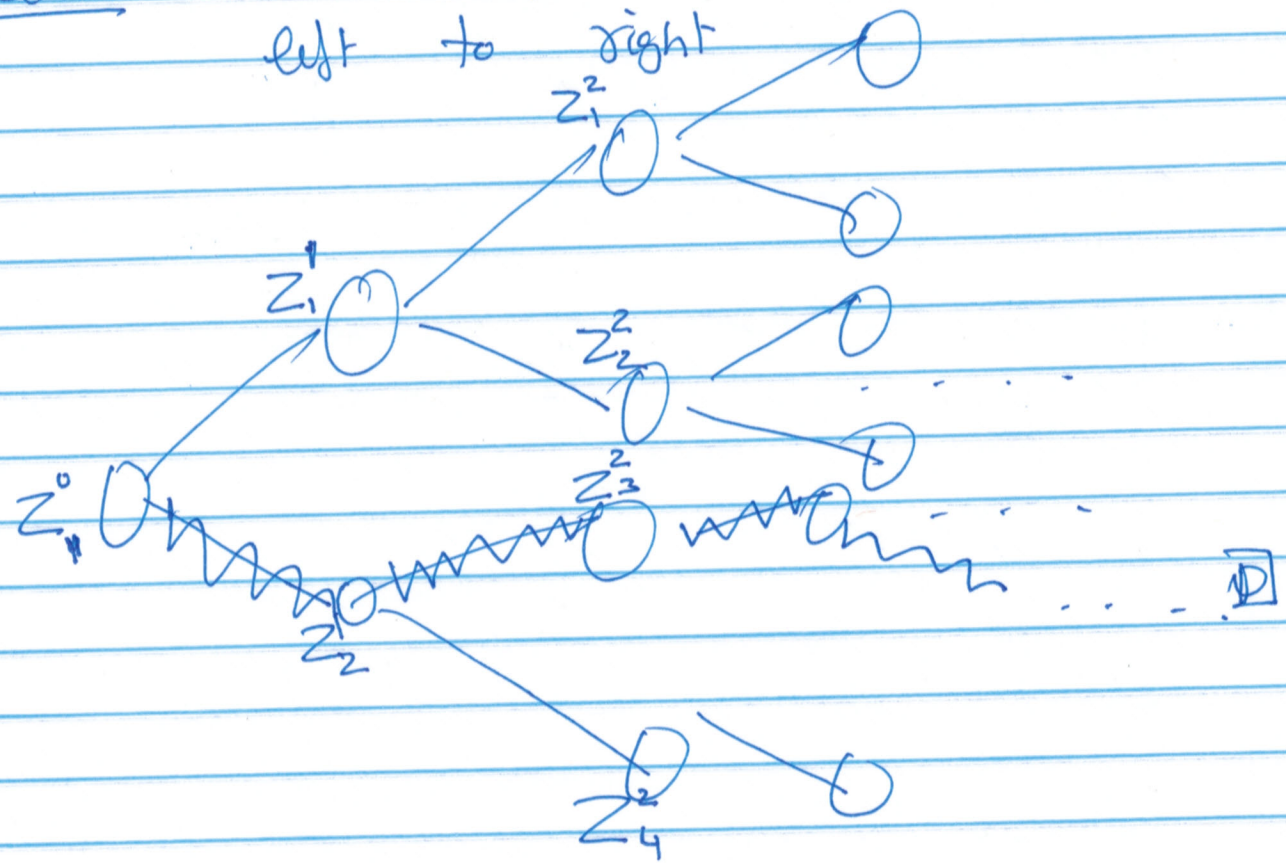 left to right
Z₁²
Z₁¹
Z₂²
Z₁⁰
Z₃²
D
Z₂¹
Z₄²